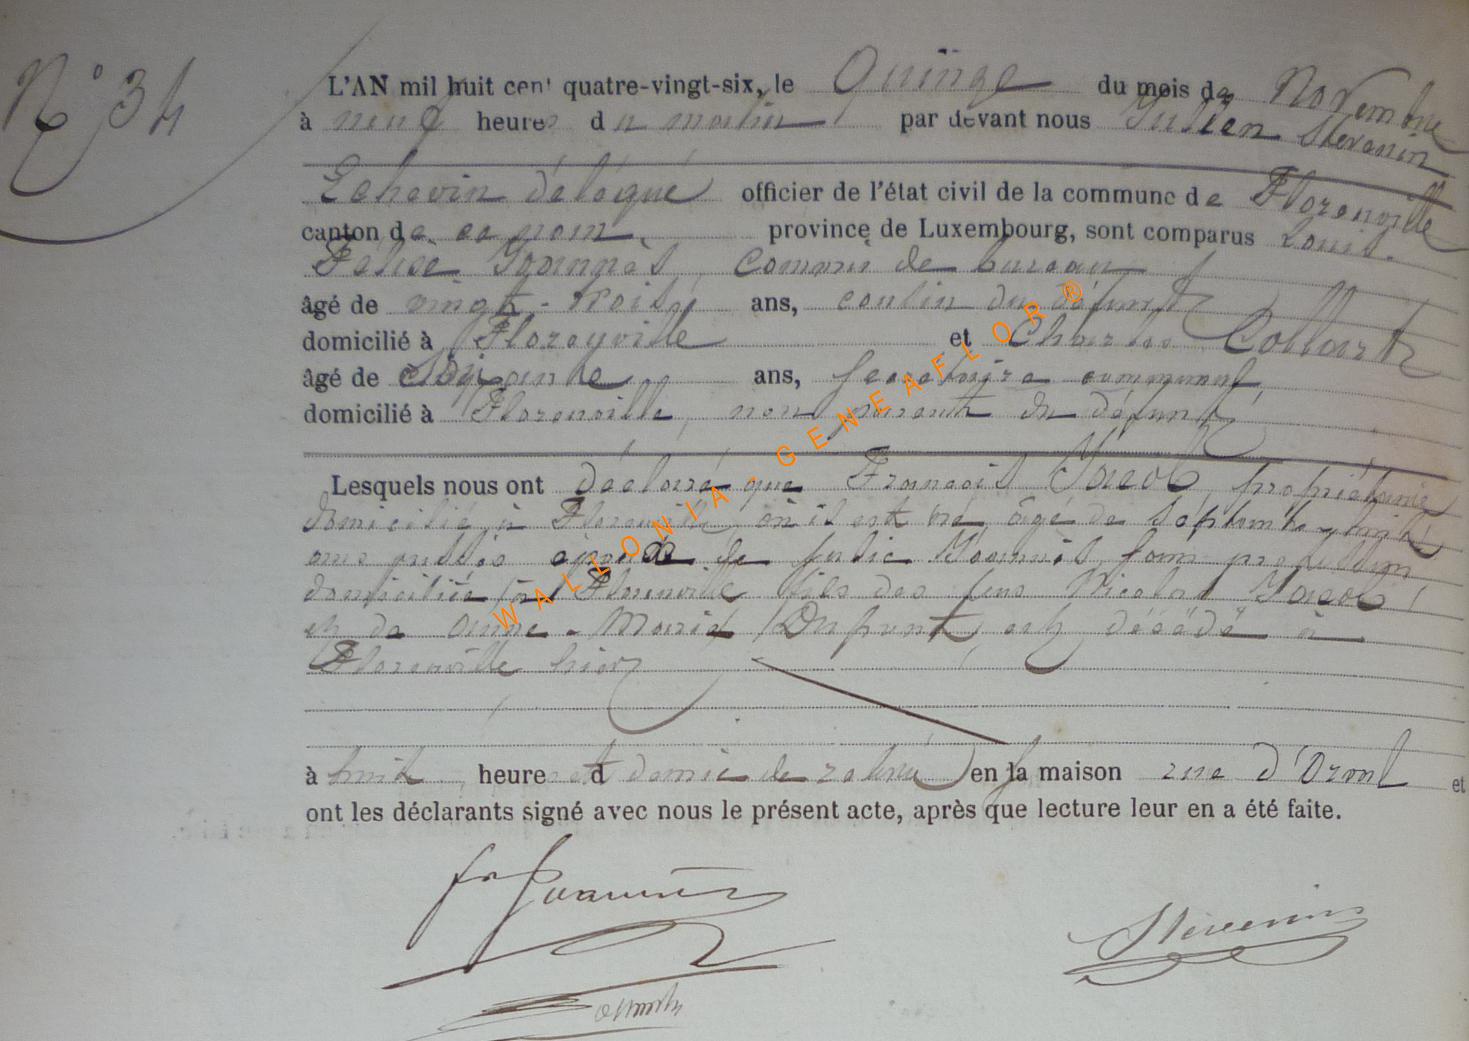 N° 34
L'AN mil huit cent quatre-vingt-six, le Quinze du mois de Novembre
à neuf heures du matin par devant nous Julien Stevenin
Echevin délégué officier de l'état civil de la commune de Florenville
canton de ce nom, province de Luxembourg, sont comparus Louis
Joannès, Commis de bureau
âgé de vingt-trois ans, cousin du défunt
domicilié à Florenville et Charles Collart
âgé de soixante ans, secrétaire communal
domicilié à Florenville, non parent du défunt
Lesquels nous ont déclaré que François Jacob, propriétaire
domicilié à Florenville, où il est né, âgé de septante huit
ans de Joannès, sans profession
domiciliée à Florenville fils des feus Nicolas Jacob
et de Anne-Marie est décédé à
Florenville hier
à huit heures et demie de relevée en sa maison rue d'Orval et
ont les déclarants signé avec nous le présent acte, après que lecture leur en a été faite.
Joannès
Stevenin
WALLONIA-GENEAFLOR®